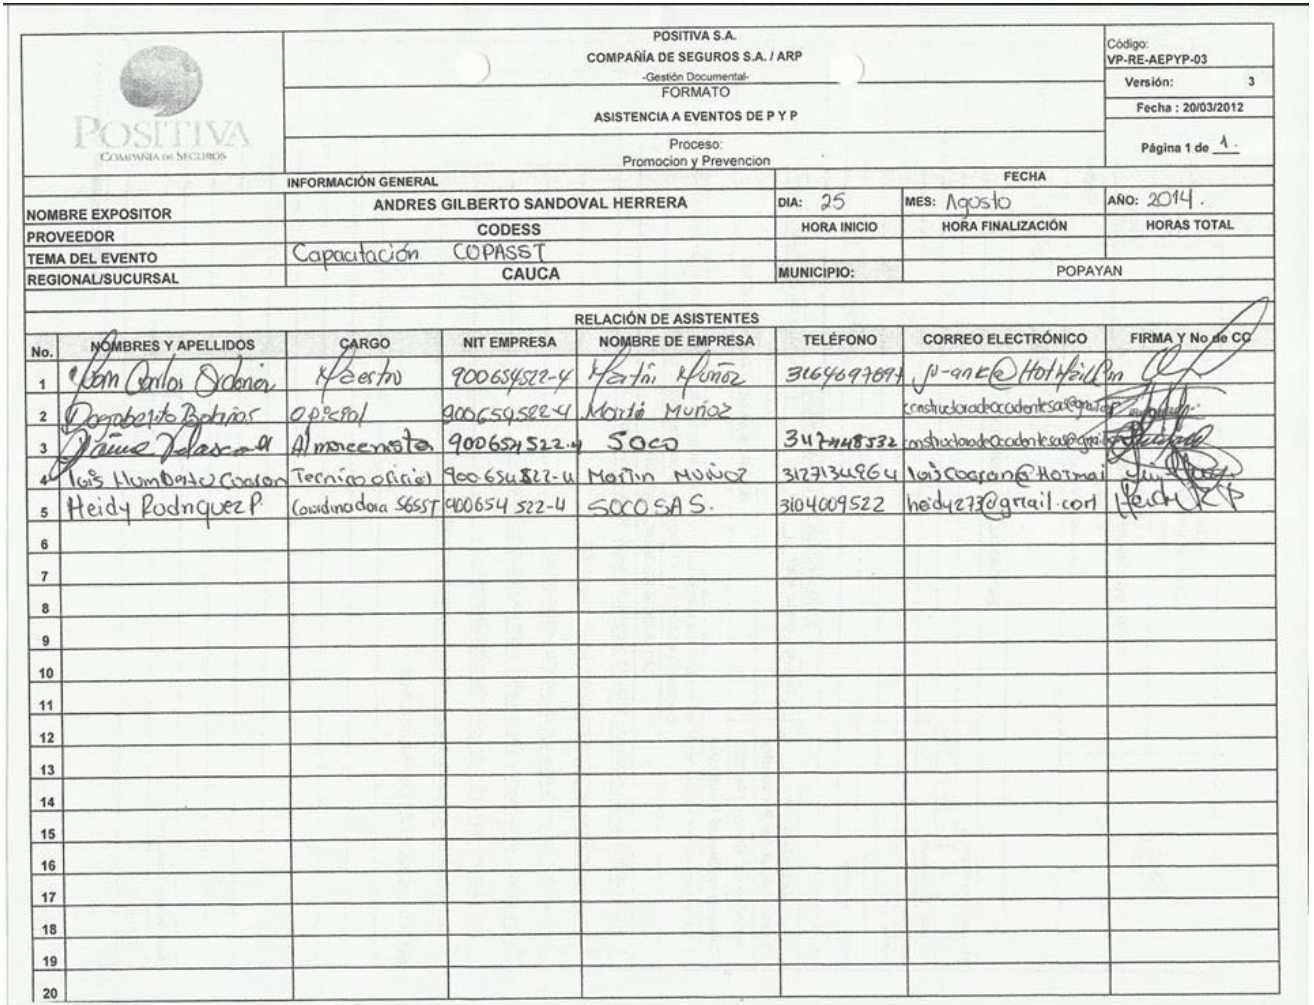 POSITIVA
COMPAÑIA DE SEGUROS
POSITIVA S.A.
COMPAÑÍA DE SEGUROS S.A. / ARP
-Gestión Documental-
FORMATO
ASISTENCIA A EVENTOS DE P Y P
Proceso:
Promocion y Prevencion
Código:
VP-RE-AEPYP-03
Versión: 3
Fecha : 20/03/2012
Página 1 de 1.
INFORMACIÓN GENERAL FECHA
NOMBRE EXPOSITOR ANDRES GILBERTO SANDOVAL HERRERA DIA: 25 MES: Agosto AÑO: 2014.
PROVEEDOR CODESS HORA INICIO HORA FINALIZACIÓN HORAS TOTAL
TEMA DEL EVENTO Capacitación COPASST
REGIONAL/SUCURSAL CAUCA MUNICIPIO: POPAYAN
RELACIÓN DE ASISTENTES
No. NOMBRES Y APELLIDOS CARGO NIT EMPRESA NOMBRE DE EMPRESA TELÉFONO CORREO ELECTRÓNICO FIRMA Y No de CC
1 Carlos Maestro 900654522-4 Martín Muñoz
2 Dagoberto Bolaños oficial 900654522-4 Muñoz
3 Velasco Almacenista 900654522-4 SOCO
4 Luis Humberto Tecnico oficial 900-654522-4 Martin Muñoz
5 Heidy Rodriguez P. Coordinadora SGSST 900654522-4 SOCO SAS. 3104009522
6
7
8
9
10
11
12
13
14
15
16
17
18
19
20